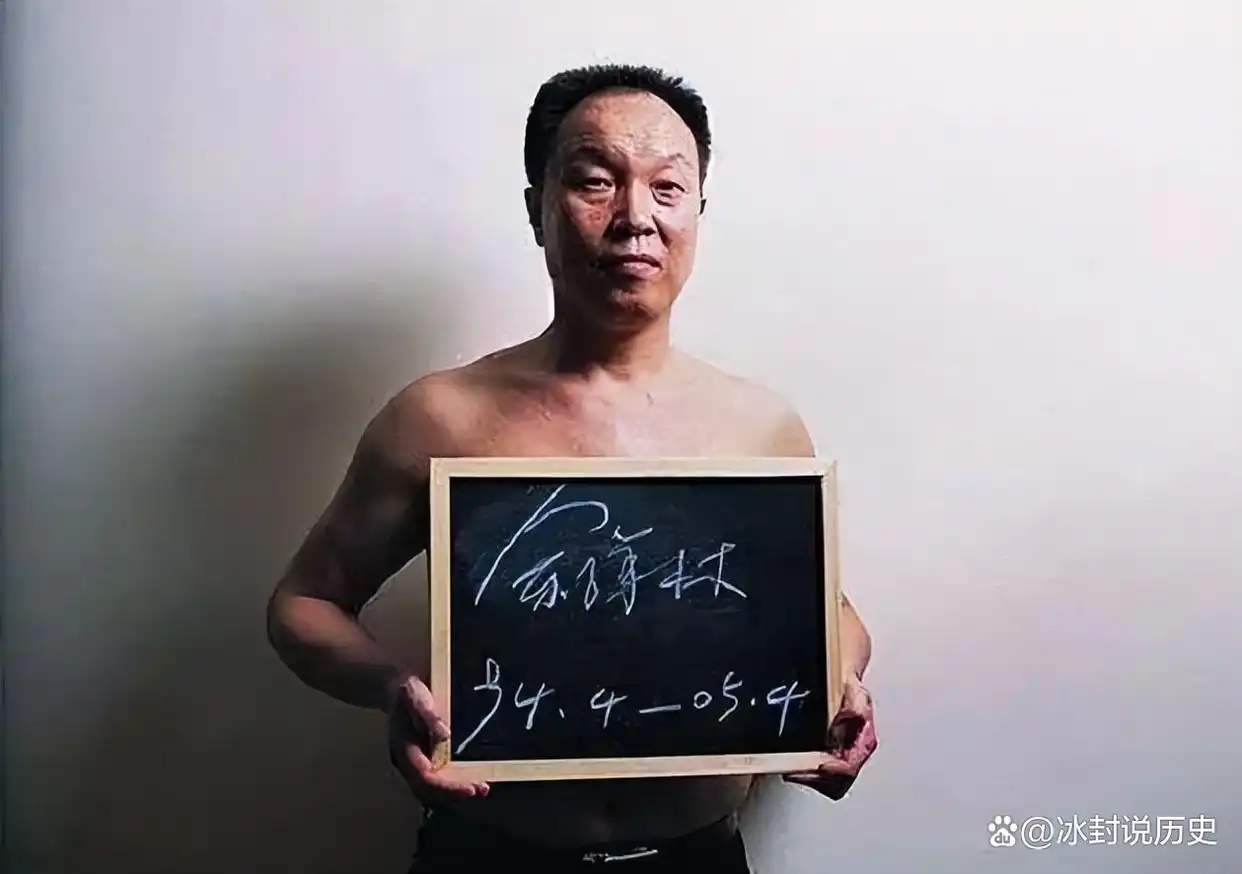 佘祥林
94.4—05.4
du@冰封说历史